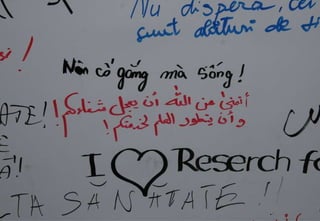 Nu dispera, cei
sunt alături de
!
Nên cố gắng mà sống!
أتمنى من الله أن يعجل شفاءكم!
وأن يتطور العلم لخدمتكم!
ATE!!
I ♡ Reserch fo
TA SĂNĂTATE!!